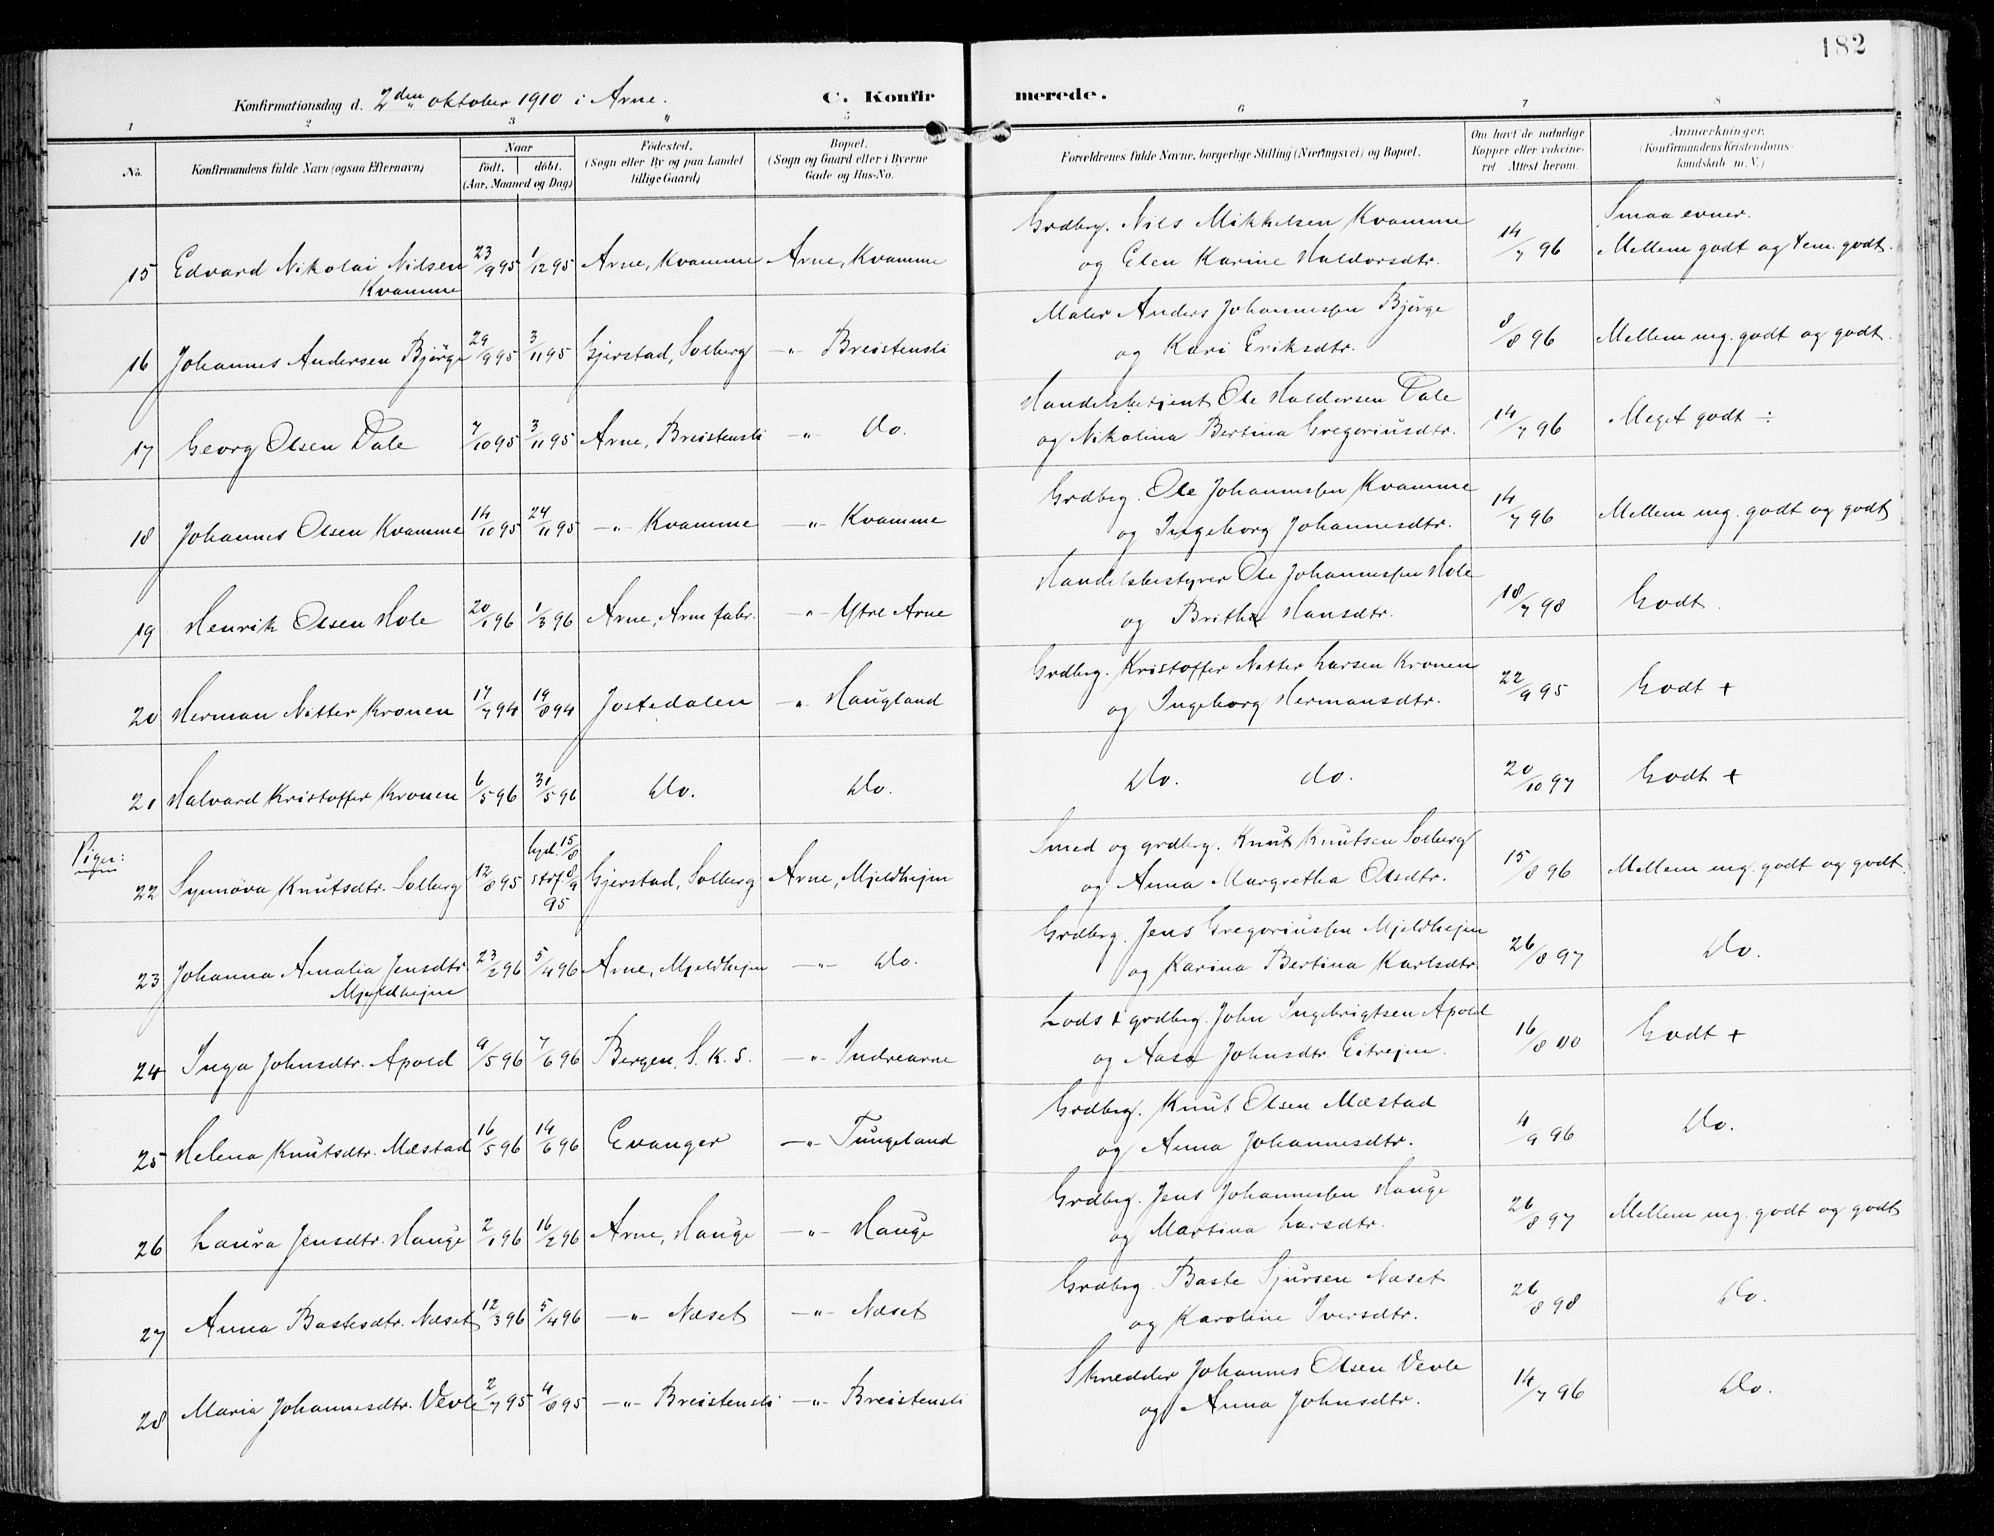 182
Konfirmationsdag d. 2den oktober 1910 i Arne. C. Konfirmerede.
1 2 3 " 5 6 7 8
No. Konfirmandens fulde Navn (ogsaa Efternavn) Naar Födt. döbt. (Aar, Maaned og Dag) Födested. (Sogn eller By og paa Landet tillige Gaard) Bopæl. (Sogn og Gaard eller i Byerne Gade og Hus-No. Forældrenes fulde Navne, borgerlige Stilling (Næringsvei) og Bopæl. Om havt de naturlige Kopper eller vakcineret. Attest herom. Anmærkninger. (Konfirmandens Kristendomskundskab m. V.)
Grdbrg. Nils Mikkelsen Kvamme Smaa evner.
15 Edvard Nikolai Nilsen 23/9 95 1/12 95 Arne, Kvamme Arne, Kvamme og Elen Karine Haldorsdtr. 14/7 96 Mellem godt og tem. godt.
Kvamme
Maler Anders Johannessen Bjørge
16 Johannes Andersen Bjørge 29/9 95 3/11 95 Gjerstad, Solberg -"- Breistensli og Kari Eriksdtr. 8/8 96 Mellem mg. godt og godt.
Handelsbetjent Ole Haldorsen Dale
17 Georg Olsen Dale 7/10 95 3/11 95 Arne, Breistensli -"- Do. og Nikolina Bertina Gregoriusdtr. 14/7 96 Meget godt ÷
Grdbrg. Ole Johannessen Kvamme
18 Johannes Olsen Kvamme 14/10 95 24/11 95 -"- Kvamme -"- Kvamme og Ingeborg Johannesdtr. 14/7 96 Mellem mg. godt og godt
Handelsbestyrer Ole Johannessen Hole
19 Henrik Olsen Hole 20/1 96 1/3 96 Arne, Arne fabr. -"- Ytre Arne og Britha Hansdtr. 18/7 98 Godt.
Grdbrg. Kristoffer Nitter Larsen Kronen
20 Herman Nitter Kronen 17/7 94 19/8 94 Jostedalen -"- Haugland og Ingeborg Hermansdtr. 22/9 95 Godt +
21 Halvard Kristoffer Kronen 6/5 96 31/5 96 Do. Do. Do. do. 20/10 97 Godt +
Piger:
Smed og grdbrg. Knut Knutsen Solberg
22 Synnöva Knutsdtr. Solberg 12/8 95 hjd. 15/8 stdf. 8/9 95 Gjerstad, Solberg Arne, Mjeldhejm og Anna Margretha Olsdtr. 15/8 96 Mellem mg. godt og godt.
Grdbrg. Jens Gregoriussen Mjeldhejm
23 Johanna Amalia Jensdtr. 23/2 96 5/4 96 Arne, Mjeldhejm -"- Do. og Karina Bertina Karlsdtr. 26/8 97 Do.
Mjeldhejm
Lods & grdbrg. John Ingebrigtsen Apold
24 Inga Johnsdtr. Apold 9/5 96 7/6 96 Bergen, S. K. S. -"- Indrearne og Aasa Johnsdtr. Eitrejm. 16/8 00 Godt +
Grdbrg. Knut Olsen Mæstad
25 Helena Knutsdtr. Mæstad 16/5 96 14/6 96 Evanger -"- Tungeland og Anna Johannesdtr. 4/9 96 Do.
Grdbrg. Jens Johannessen Hauge
26 Laura Jensdtr. Hauge 2/1 96 16/2 96 Arne, Hauge -"- Hauge og Martina Larsdtr. 26/8 97 Mellem mg. godt og godt
Grdbrg. Baste Sjursen Næset
27 Anna Bastesdtr. Næset 12/3 96 5/4 96 -"- Næset -"- Næset og Karoline Iversdtr. 26/8 98 Do.
Skredder Johannes Olsen Vevle
28 Maria Johannesdtr. Vevle 2/7 95 4/8 95 -"- Breistensli -"- Breistensli og Anna Johnsdtr. 14/7 96 Do.